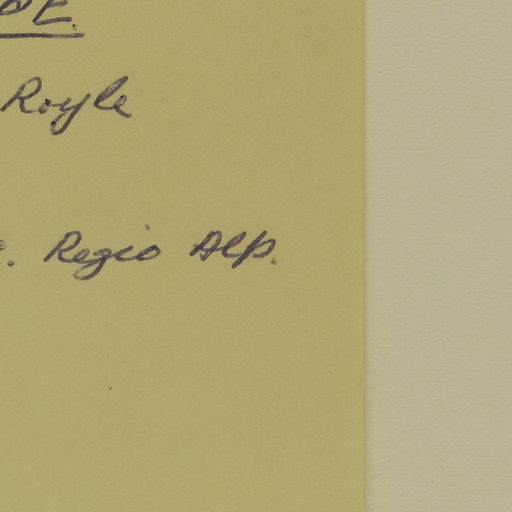 DE.
Royle
. Regio Alp.